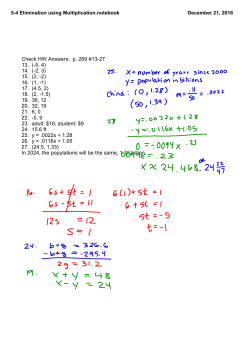 5-4 Elimination using Multiplication.notebook
December 21, 2016
Check HW Answers: p. 269 #13-27
13. (-5, 4)
14. (-2, 3)
15. (2, -2)
16. (1, -1)
17. (4.5, 2)
18. (2, -1.5)
19. 36, 12
20. 32, 12
21. 6, 0
22. -5, 9
23. adult: $16; student: $9
24. 15.6 ft
25. y = .0022x + 1.28
26. y = .0116x + 1.05
27. (24.5, 1.33)
In 2024, the populations will be the same, 1.33
25. x = number of years since 2000
y = population in billions
China: (0, 1.28) m = .11/50 = .0022
(50, 1.39)
27 y = .0022x + 1.28
-y = .0116x + 1.05
0 = -.0094x + .23
.0094x = .23
x ≈ 24.468 or 24 22/47
16. 6s + 5t = 1
6s - 5t = 11
12s = 12
s = 1
6(1) + 5t = 1
6 + 5t = 1
5t = -5
t = -1
24. b+g = 326.6
-b+g = -295.4
2g = 31.2
19. x + y = 48
x - y = 24